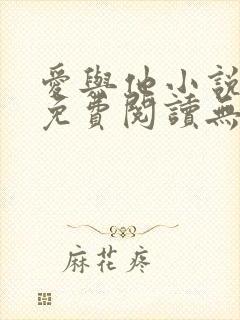 愛與他小說
免費閱讀無
麻花疼